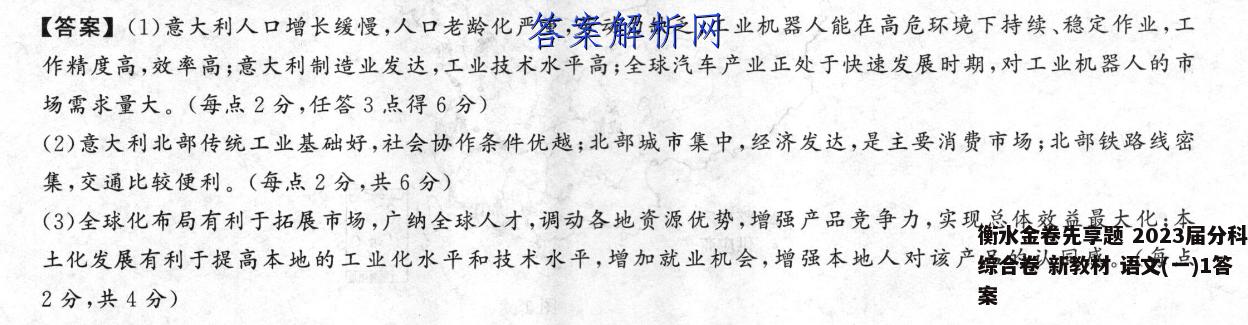 【答案】(1)意大利人口增长缓慢,人口老龄化严 业机器人能在高危环境下持续、稳定作业,工
答案解析网
作精度高,效率高;意大利制造业发达,工业技术水平高;全球汽车产业正处于快速发展时期,对工业机器人的市
场需求量大。(每点 2 分,任答 3 点得 6 分)
(2)意大利北部传统工业基础好,社会协作条件优越;北部城市集中,经济发达,是主要消费市场;北部铁路线密
集,交通比较便利。(每点 2 分,共 6 分)
(3)全球化布局有利于拓展市场,广纳全球人才,调动各地资源优势,增强产品竞争力,实现总体效益最大化;本
土化发展有利于提高本地的工业化水平和技术水平,增加就业机会,增强本地人对该产 点
2 分,共 4 分)
衡水金卷先享题 2023届分科
综合卷 新教材 语文(一)1答
案